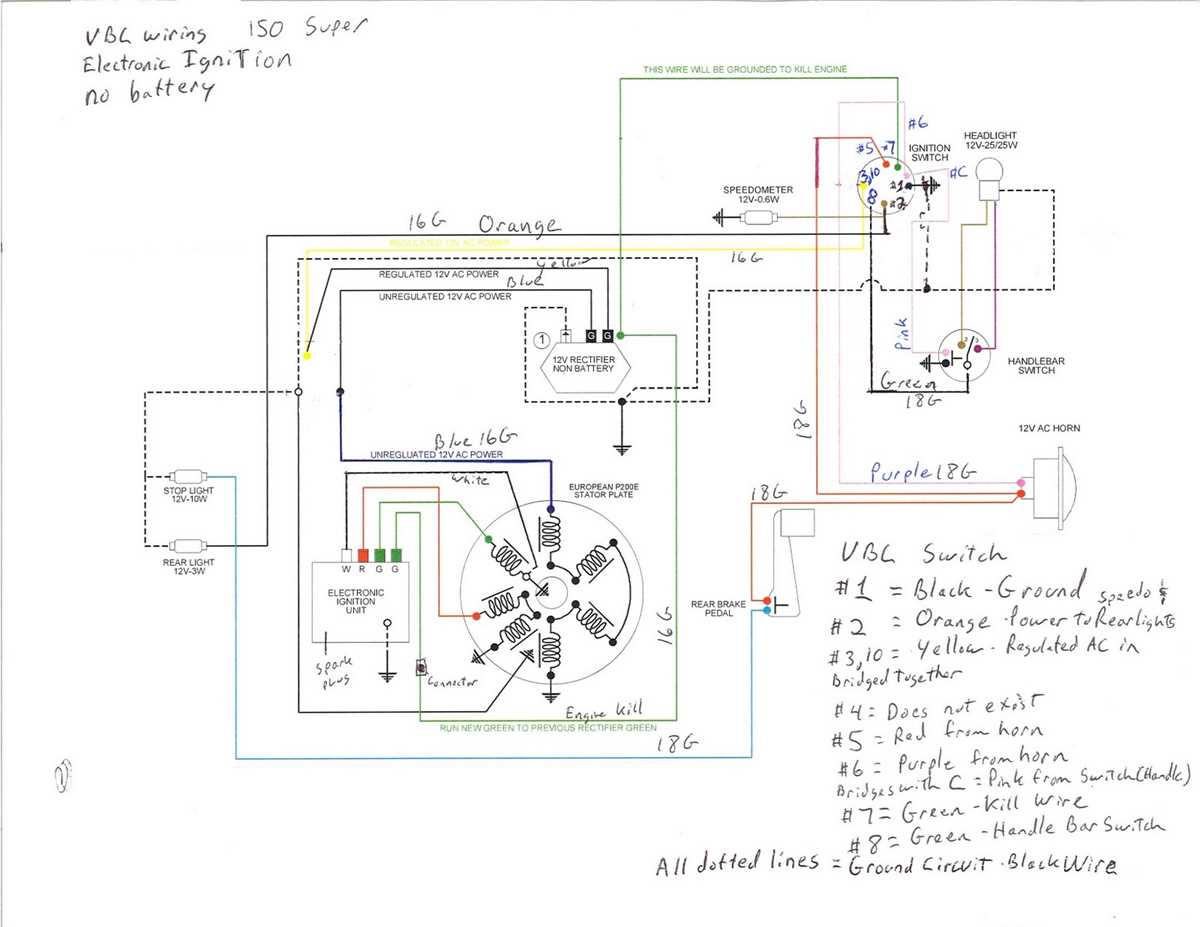 VBC wiring 150 Super
Electronic Ignition
no battery
THIS WIRE WILL BE GROUNDED TO KILL ENGINE
#6
HEADLIGHT
12V-25/25W
#5
#7
IGNITION
SWITCH
#C
3,10
#1
8
#2
SPEEDOMETER
12V-0.6W
16G Orange
REGULATED 12V AC POWER
16G
Yellow
REGULATED 12V AC POWER
Blue
UNREGULATED 12V AC POWER
1
G G
12V RECTIFIER
NON BATTERY
Pink
HANDLEBAR
SWITCH
Green
18G
18G
12V AC HORN
Blue 16G
UNREGLUATED 12V AC POWER
White
Purple 18G
18G
STOP LIGHT
12V-10W
EUROPEAN P200E
STATOR PLATE
REAR LIGHT
12V-3W
W R G G
ELECTRONIC
IGNITION
UNIT
REAR BRAKE
PEDAL
16G
spark
plug
Connector
Engine Kill
RUN NEW GREEN TO PREVIOUS RECTIFIER GREEN
18G
VBC Switch
#1 = Black - Ground speedo &
#2 = Orange - Power to Rearlights
#3,10 = Yellow - Regulated AC in
Bridged together
#4 = Does not exist
#5 = Red from horn
#6 = Purple from horn
Bridges with C = Pink from Switch (Handle)
#7 = Green - Kill Wire
#8 = Green - Handle Bar Switch
All dotted lines = Ground Circuit - Black Wire